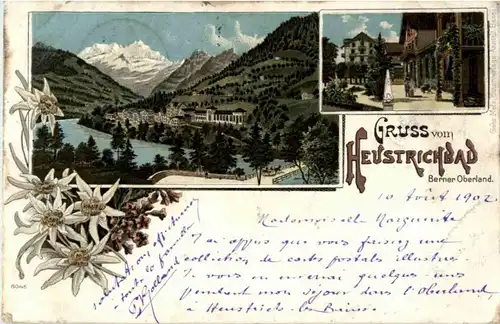 GRUSS vom
HEUSTRICHBAD
Berner Oberland.
10 Août 1902
Mademoiselle Marguerite
J'ai appris que vous faisiez une
collection de cartes postals illustrées
Je vous en enverrai quelques unes
pendant mon séjour dans l'Oberland
à Heustrich-les-Bains.
Salutations affectueuses
à toute la famille
6046